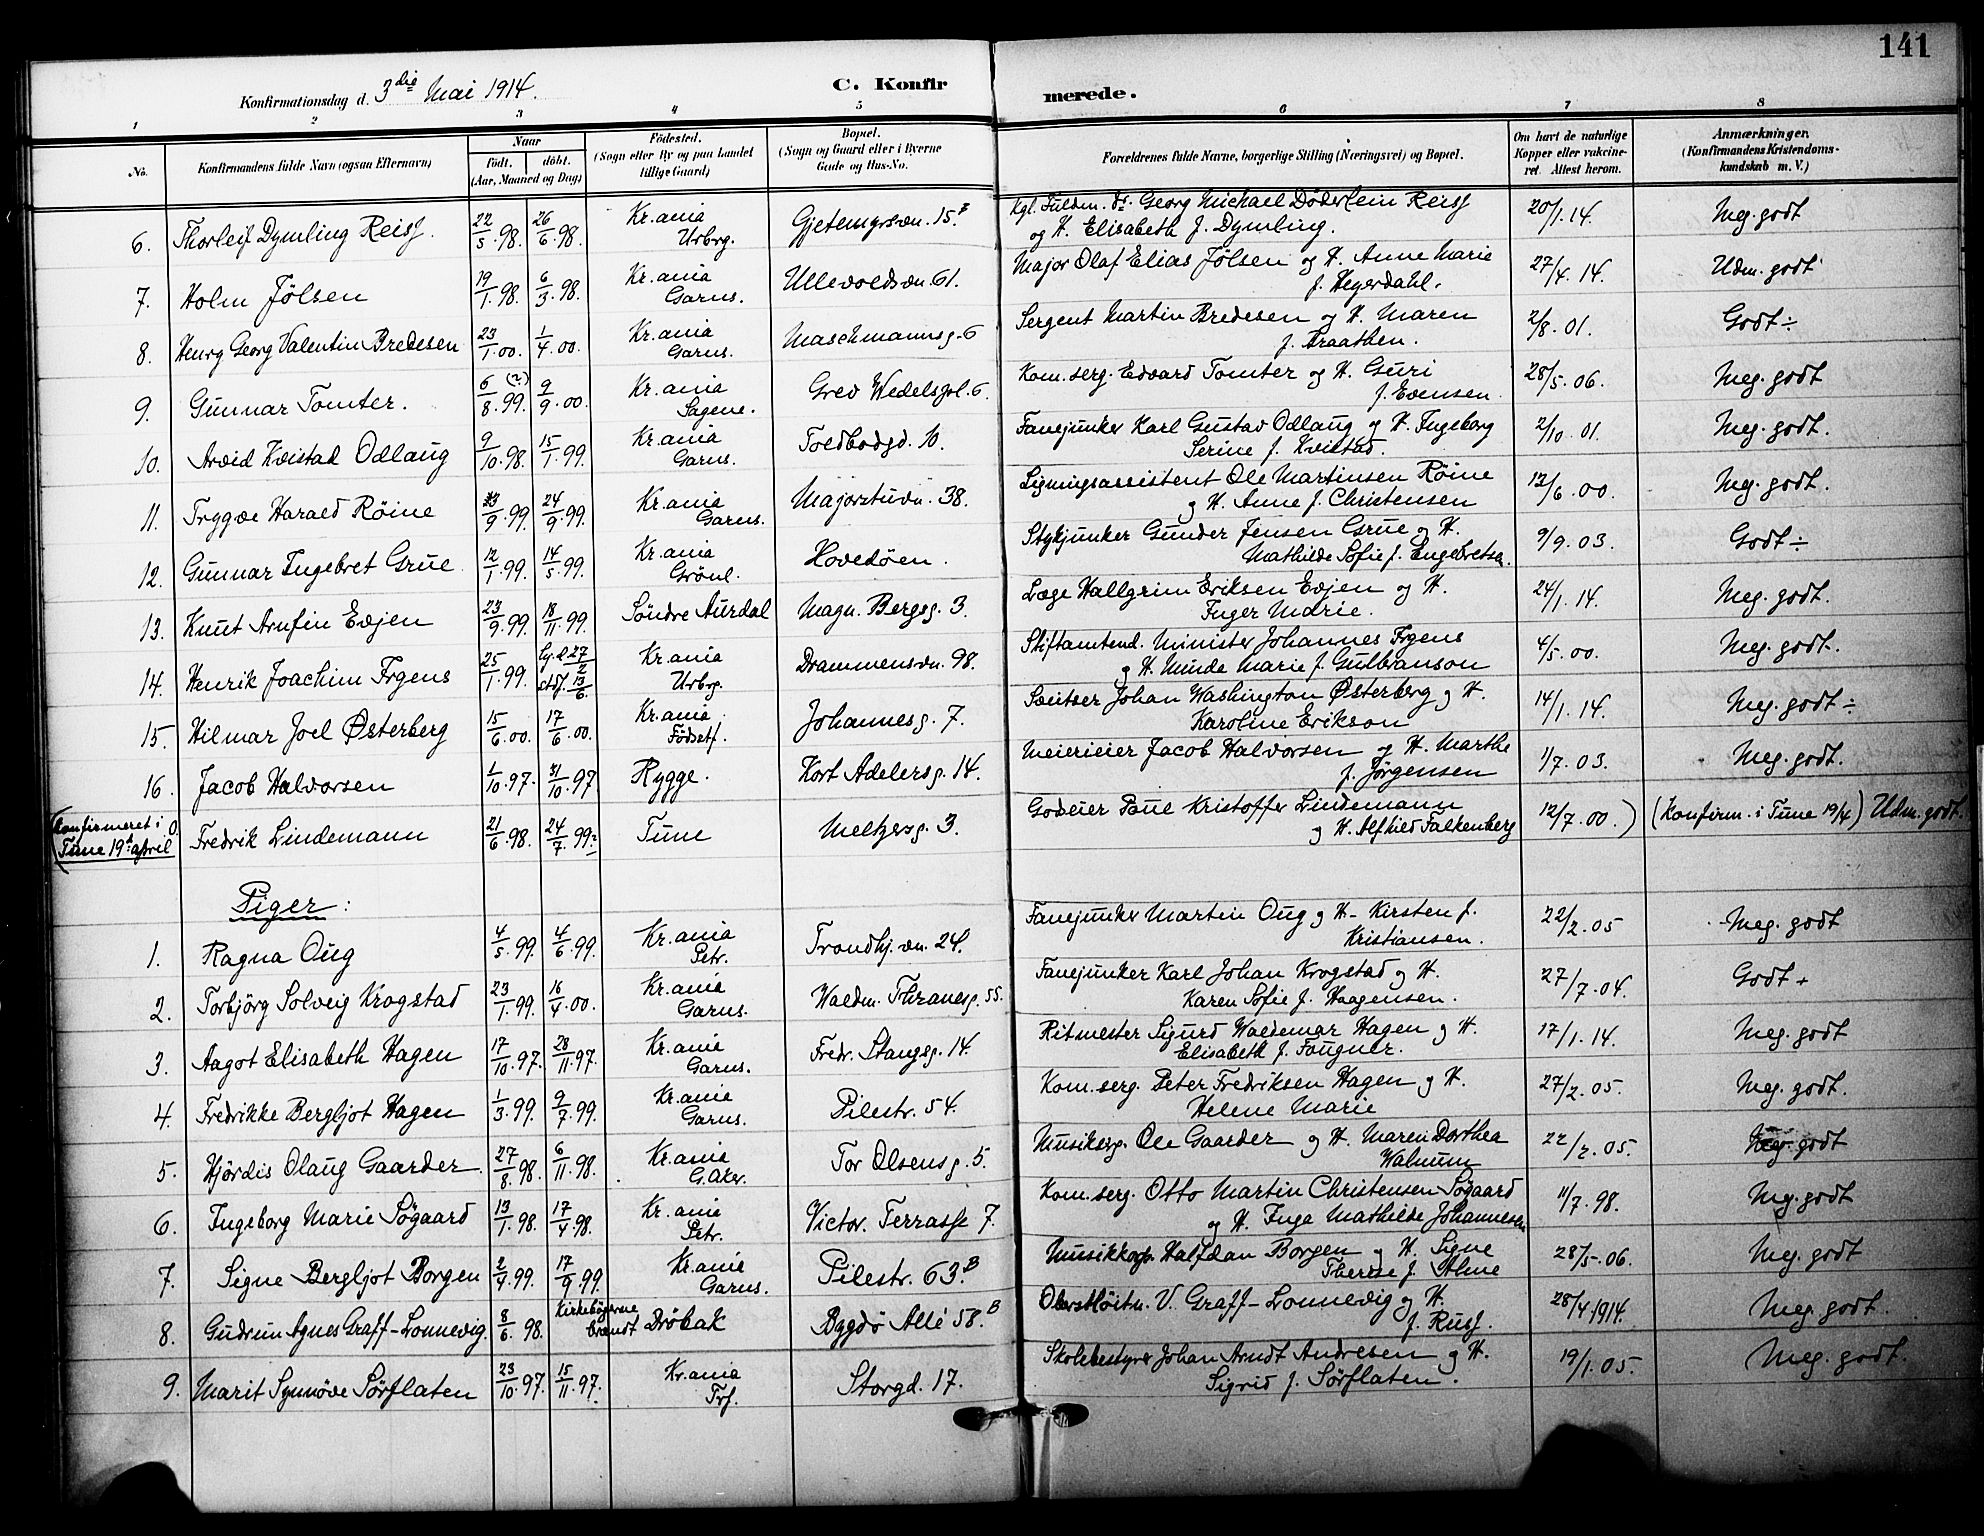 141
Konfirmationsdag d. 3die Mai 1914.
C. Konfirmerede.
1 2 3 4 5 6 7 8
No.
Konfirmandens fulde Navn (ogsaa Efternavn)
Naar
født. døbt.
(Aar, Maaned og Dag)
Fødested.
(Sogn eller By og paa Landet
tillige Gaard)
Bopæl.
(Sogn og Gaard eller i Byerne
Gade og Hus-No.
Forældrenes fulde Navne, borgerlige Stilling (Næringsvei) og Bopæl.
Om havt de naturlige
Kopper eller vakcine-
ret. Attest herom.
Anmærkninger.
(Konfirmandens Kristendoms-
kundskab m. V.)
6. Thorleif Dymling Reiss. 22/5.98. 26/6.98. Kr.ania Urbrg. Gjetemyrsvn. 15B Kgl. Fuldm. dr. Georg Michael Döderlein Reiss og H. Elisabeth f. Dymling. 20/1.14. Meg. godt
7. Holm Jölsen 19/1.98. 6/3.98. Kr.ania Garns. Ullevoldsvn. 61. Major Olaf Elias Jölsen og H. Anne Marie f. Heyerdahl. 27/4.14. Udm. godt
8. Henry Georg Valentin Bredesen 23/1.00. 1/4.00. Kr.ania Garns. Maschmannsg. 6 Sergent Martin Bredesen og H. Maren f. Braathen. 2/8.01. Godt ÷
9. Gunnar Tomter. 6/8.99. (?) 9/9.00. Kr.ania Sagene. Grev Wedelspl. 6. Kom. serg. Edvard Tomter og H. Guri f. Evensen. 28/5.06. Meg. godt
10. Arvid Kvistad Odlaug 9/10.98. 15/1.99. Kr.ania Garns. Toldbodgd. 10. Fanejunker Karl Gustav Odlaug og H. Ingeborg Serine f. Kvistad. 2/10.01. Meg. godt.
11. Trygve Harald Röine 23/9.99. 24/9.99. Kr.ania Garns. Majorstuvn. 38. Ligningsassistent Ole Martinsen Röine og H. Anne f. Christensen 12/6.00. Meg. godt.
12. Gunnar Ingebret Grue. 12/1.99. 14/5.99. Kr.ania Grönl. Hovedöen. Stykjunker Gunder Jensen Grue og H. Mathilde Sofie f. Engebretsen. 9/9.03. Godt ÷
13. Knut Arnfin Evjen 23/9.99. 18/11.99. Söndre Aurdal Magn. Bergsg. 3. Læge Hallgrim Eriksen Evjen og H. Inger Marie. 24/1.14. Meg. godt.
14. Henrik Joachim Irgens 25/1.99. hj.d. 27/2 stdf. 13/6. Kr.ania Urbrg. Drammensvn. 98. Stiftamtmd. Minister Johannes Irgens og H. Minde Marie f. Gulbranson 4/5.00. Meg. godt.
15. Hilmar Joel Østerberg 15/6.00. 17/6.00. Kr.ania Födsstf. Johannesg. 7. Sæitser Johan Washington Østerberg og H. Karoline Erikson 14/1.14. Meg. godt ÷
16. Jacob Halvorsen 1/10.97. 31/10.97 Rygge. Kort Adelersg. 14. Meierieier Jacob Halvorsen og H. Marthe f. Jörgensen 1/7.03. Meg. godt.
(Konfirmeret i Tune 19d april Fredrik Lindemann 21/6.98. 24/7.99? Tune Meltzersg. 3. Godseier Paul Kristoffer Lindemann og H. Alfhild Falkenberg 12/7.00.) (Konfirm. i Tune 19/4) Udm. godt.
Piger:
1. Ragna Oug 4/5.99. 4/6.99. Kr.ania Petr. Trondhj.vn. 24. Fanejunker Martin Oug og H. Kirsten f. Kristiansen. 22/2.05 Meg. godt
2. Torbjörg Solveig Krogstad 23/1.99. 16/4.00. Kr.ania Garns. Waldm. Thranesg. 55. Fanejunker Karl Johan Krogstad og H. Karen Sofie f. Haagensen. 27/7.04. Godt +
3. Aagot Elisabeth Hagen 17/10.97. 28/11.97. Kr.ania Garns. Fredr. Stangsg. 14. Ritmester Sigurd Waldemar Hagen og H. Elisabeth f. Fougner. 17/1.14. Meg. godt
4. Fredrikke Bergljot Hagen 1/3.99. 9/7.99. Kr.ania Garns. Pilestr. 54. Kom. serg. Peter Fredriksen Hagen og H. Helene Marie 27/2.05. Meg. godt.
5. Hjördis Olaug Gaarder. 27/8.98. 6/11.98. Kr.ania G.Aker. Tor Olsensg. 5. Musikerg. Ole Gaarder og H. Maren Dorthea Walnum 22/2.05. Meg. godt
6. Ingeborg Marie Sögaard 13/1.98. 17/4.98. Kr.ania Petr. Victor. Terrasse 7. Kom. serg. Otto Martin Christensen Sögaard og H. Inga Mathilde Johannesen 11/7.98. Meg. godt
7. Signe Bergljot Borgen 2/4.99. 17/9.99. Kr.ania Garns. Pilestr. 63.B Musikkorp. Halfdan Borgen og H. Signe Therese f. Alme 28/5.06. Meg. godt
8. Gudrun Agnes Graff-Lonnevig. 8/6.98. Kirkebögerne brændt Dröbak Bygdö Allé 58.B Oberstlöitn. V. Graff-Lonnevig og H. f. Russ. 28/4.1914. Meg. godt.
9. Marit Synnöve Sörflaten 23/10.97. 15/11.97. Kr.ania Trf. Storgd. 17. Skolebestyrer Johan Arndt Andresen og H. Sigrid f. Sörflaten. 19/1.05. Meg. godt.